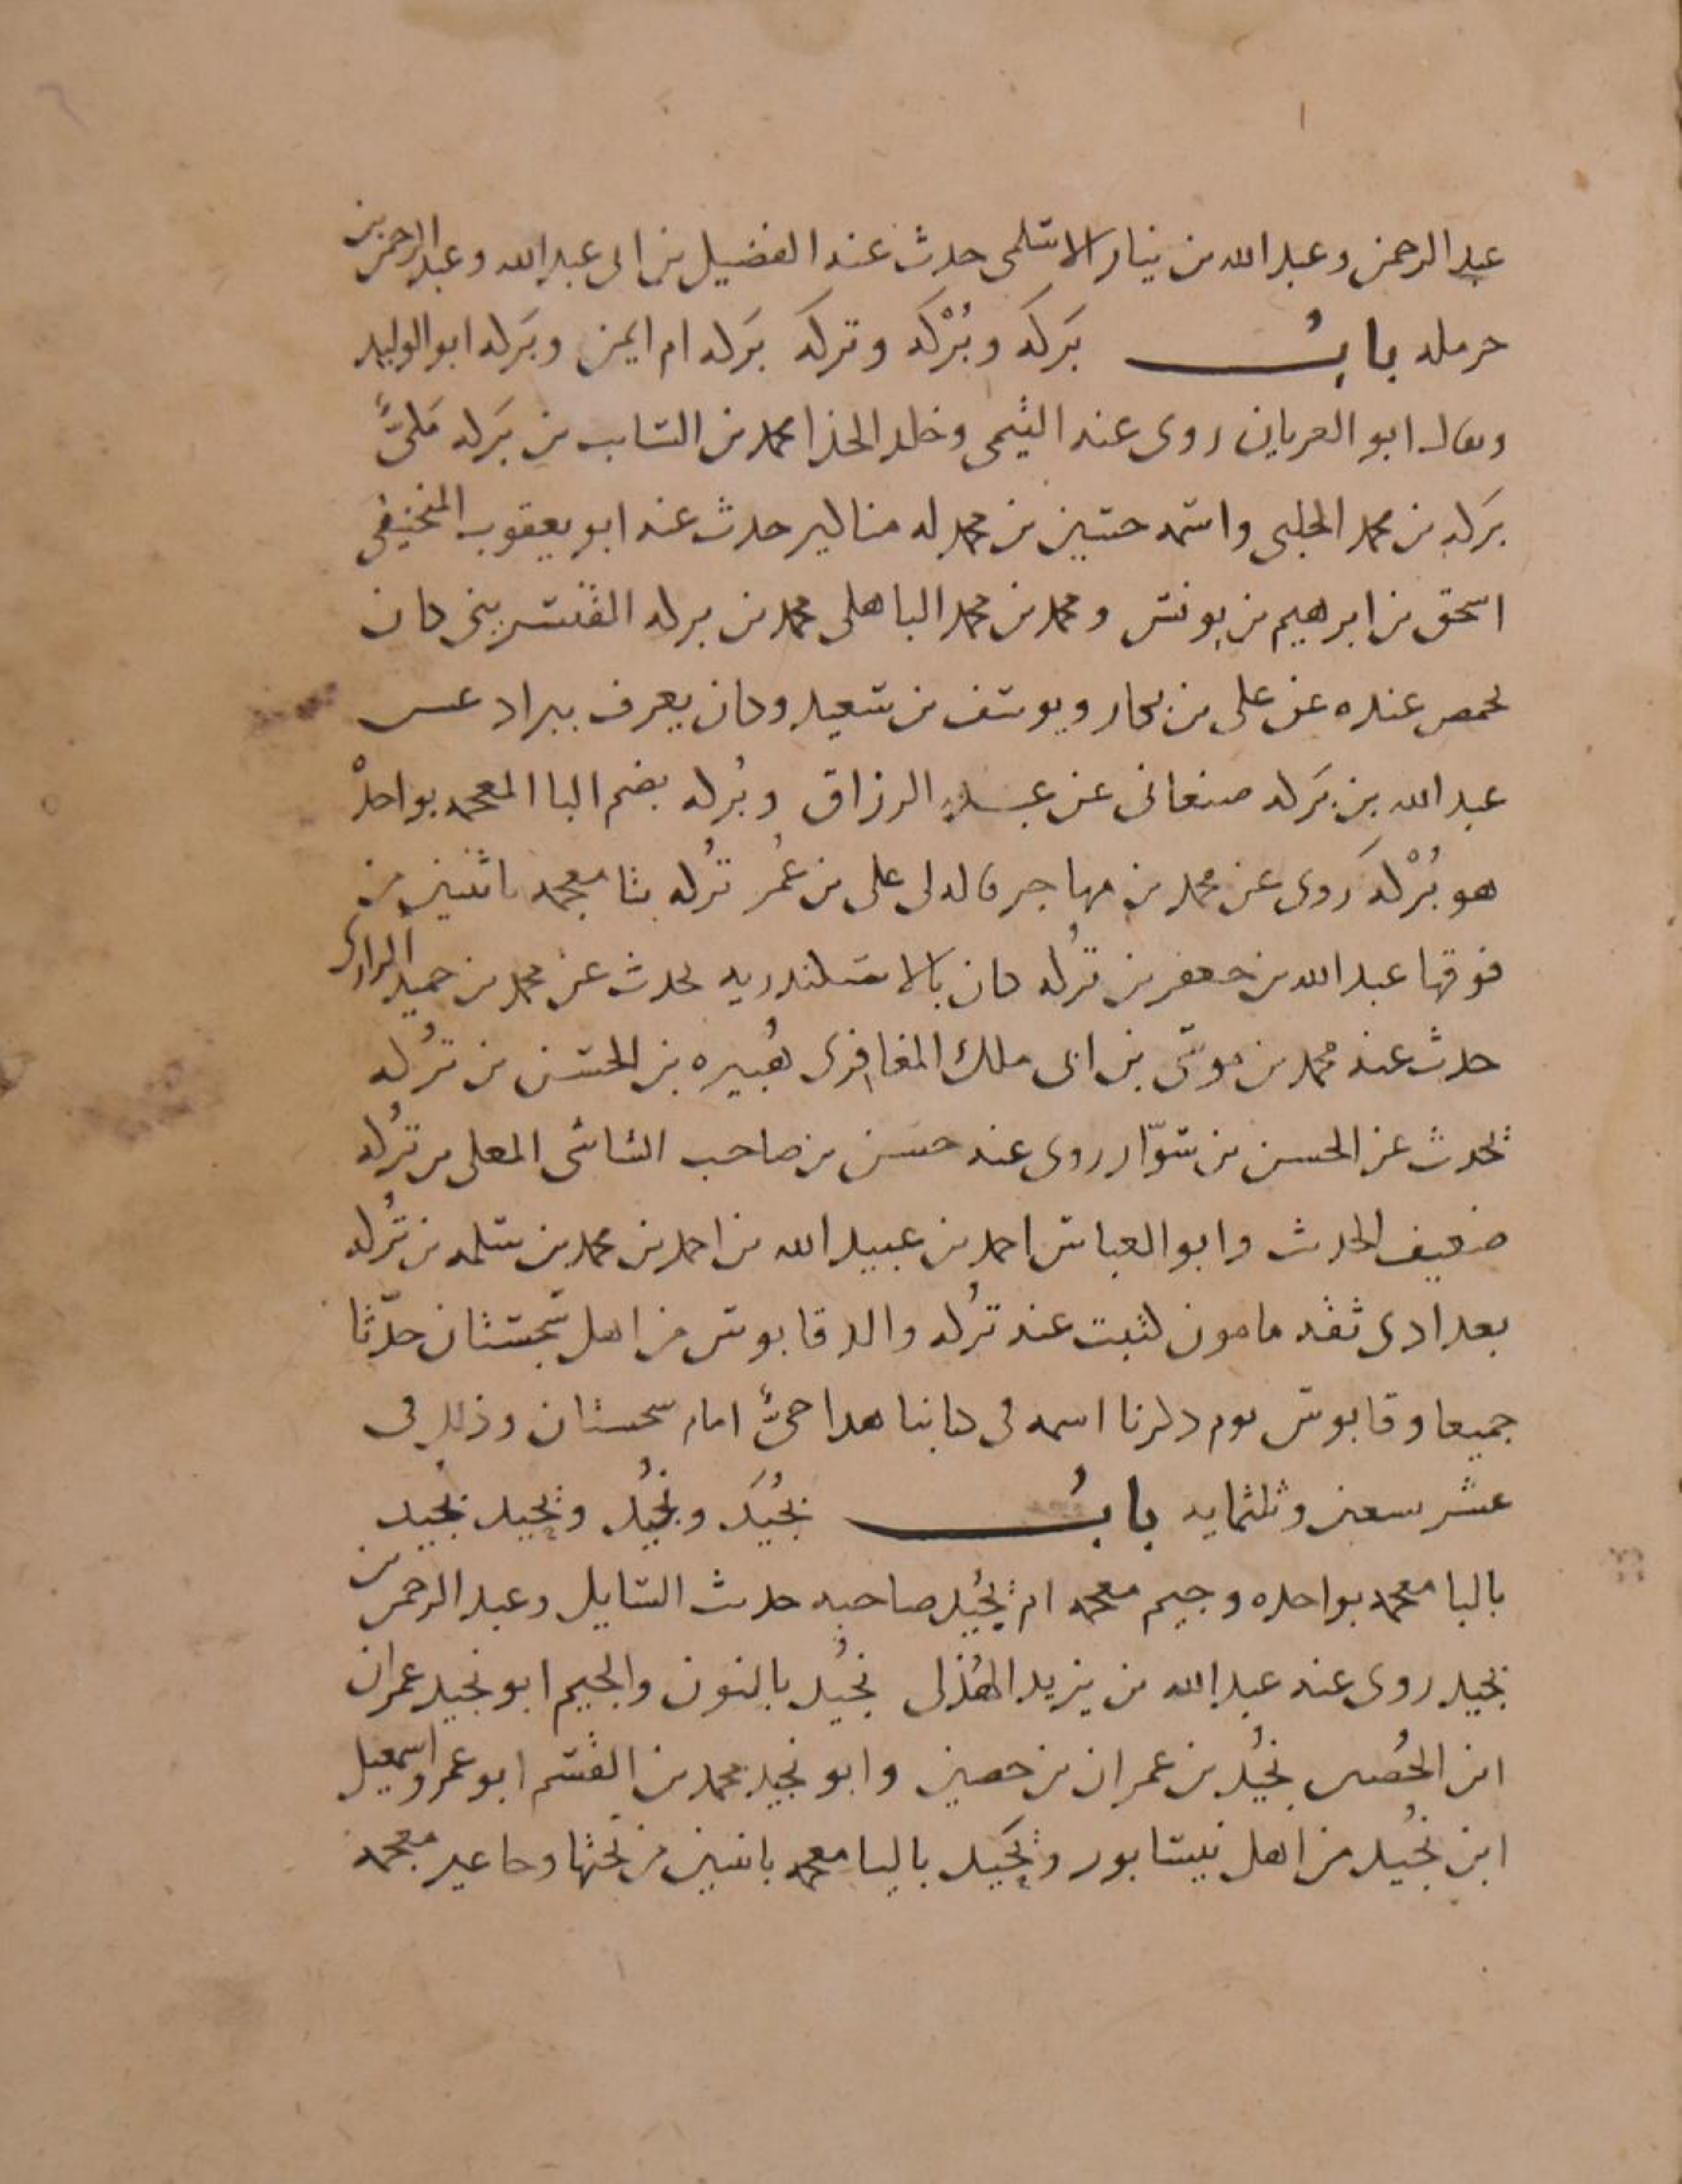 عبد الرحمن وعبد الله بن نيار الاسلمى حدث عنه الفضيل بن ابى عبد الله وعبد الرحمن بن
حرمله باب بَركَه وبُرْكَه وتركه بَركه ام ايمن وبَركه ابو الوليد
ويقال ابو العريان روى عنه التيمى وخلد الحذا محمد بن السايب بن بَركه مكىٌّ
بَركه بن محمد الحلبى واسمه حسين بن محمد له مناكير حدث عنه ابو يعقوب المنجنيقى
اسحق بن ابرهيم بن يونس ومحمد بن محمد الباهلى محمد بن بركه القنسرينى كان
بحمص عنده عن على بن بكار ويوسف بن سعيد وكان يعرف ببرداعس
عبد الله بن بَركه صنعانى عن عبد الرزاق وبُركه بضم البا المعجمه بواحدْ
هو بُرْكَه روى عن محمد بن مهاجر قاله لى على بن عُمر تُركه بتا معجمه باثنين من
فوقها عبد الله بن جعفر بن تُركه كان بالاسكندريه يحدث عن محمد بن حميد الرازى
حدث عنه محمد بن موسى بن ابى ملك المغافرى هُبيره بن الحسن بن تُركه
يحدث عن الحسن بن سوّار روى عنه حسن بن صاحب الشاشى المعلى بن تُركه
ضعيف الحدث وابو العباس احمد بن عبيد الله بن احمد بن محمد بن سلمه بن تُركه
بغدادى ثقه مامون كتبت عنه تُركه والد قابوس من اهل سجستان حدّثا
جميعا وقابوس يوم ذكرنا اسمه فى كتابنا هذا حىٌّ امام سجستان وذلك فى
عشر سعين وثلثمايه بابُ بُجَيد ونُجَيد ويحيد بجيد
بالبا معجمه بواحده وجيم معجمه ام بُجَيد صاحبه حدث السايل وعبد الرحمن بن
بجيد روى عنه عبد الله بن يزيد الهُذلى نُجَيد بالنون والجيم ابو نجيد عمران
ابن الحُصين نُجَيد بن عمران بن حصين وابو نجيد محمد بن القسم ابو عمرو اسمعيل
ابن نُجَيد من اهل نيسابور ويَحيد باليا معجمه باثنين من تحتها وحا غير معجمه